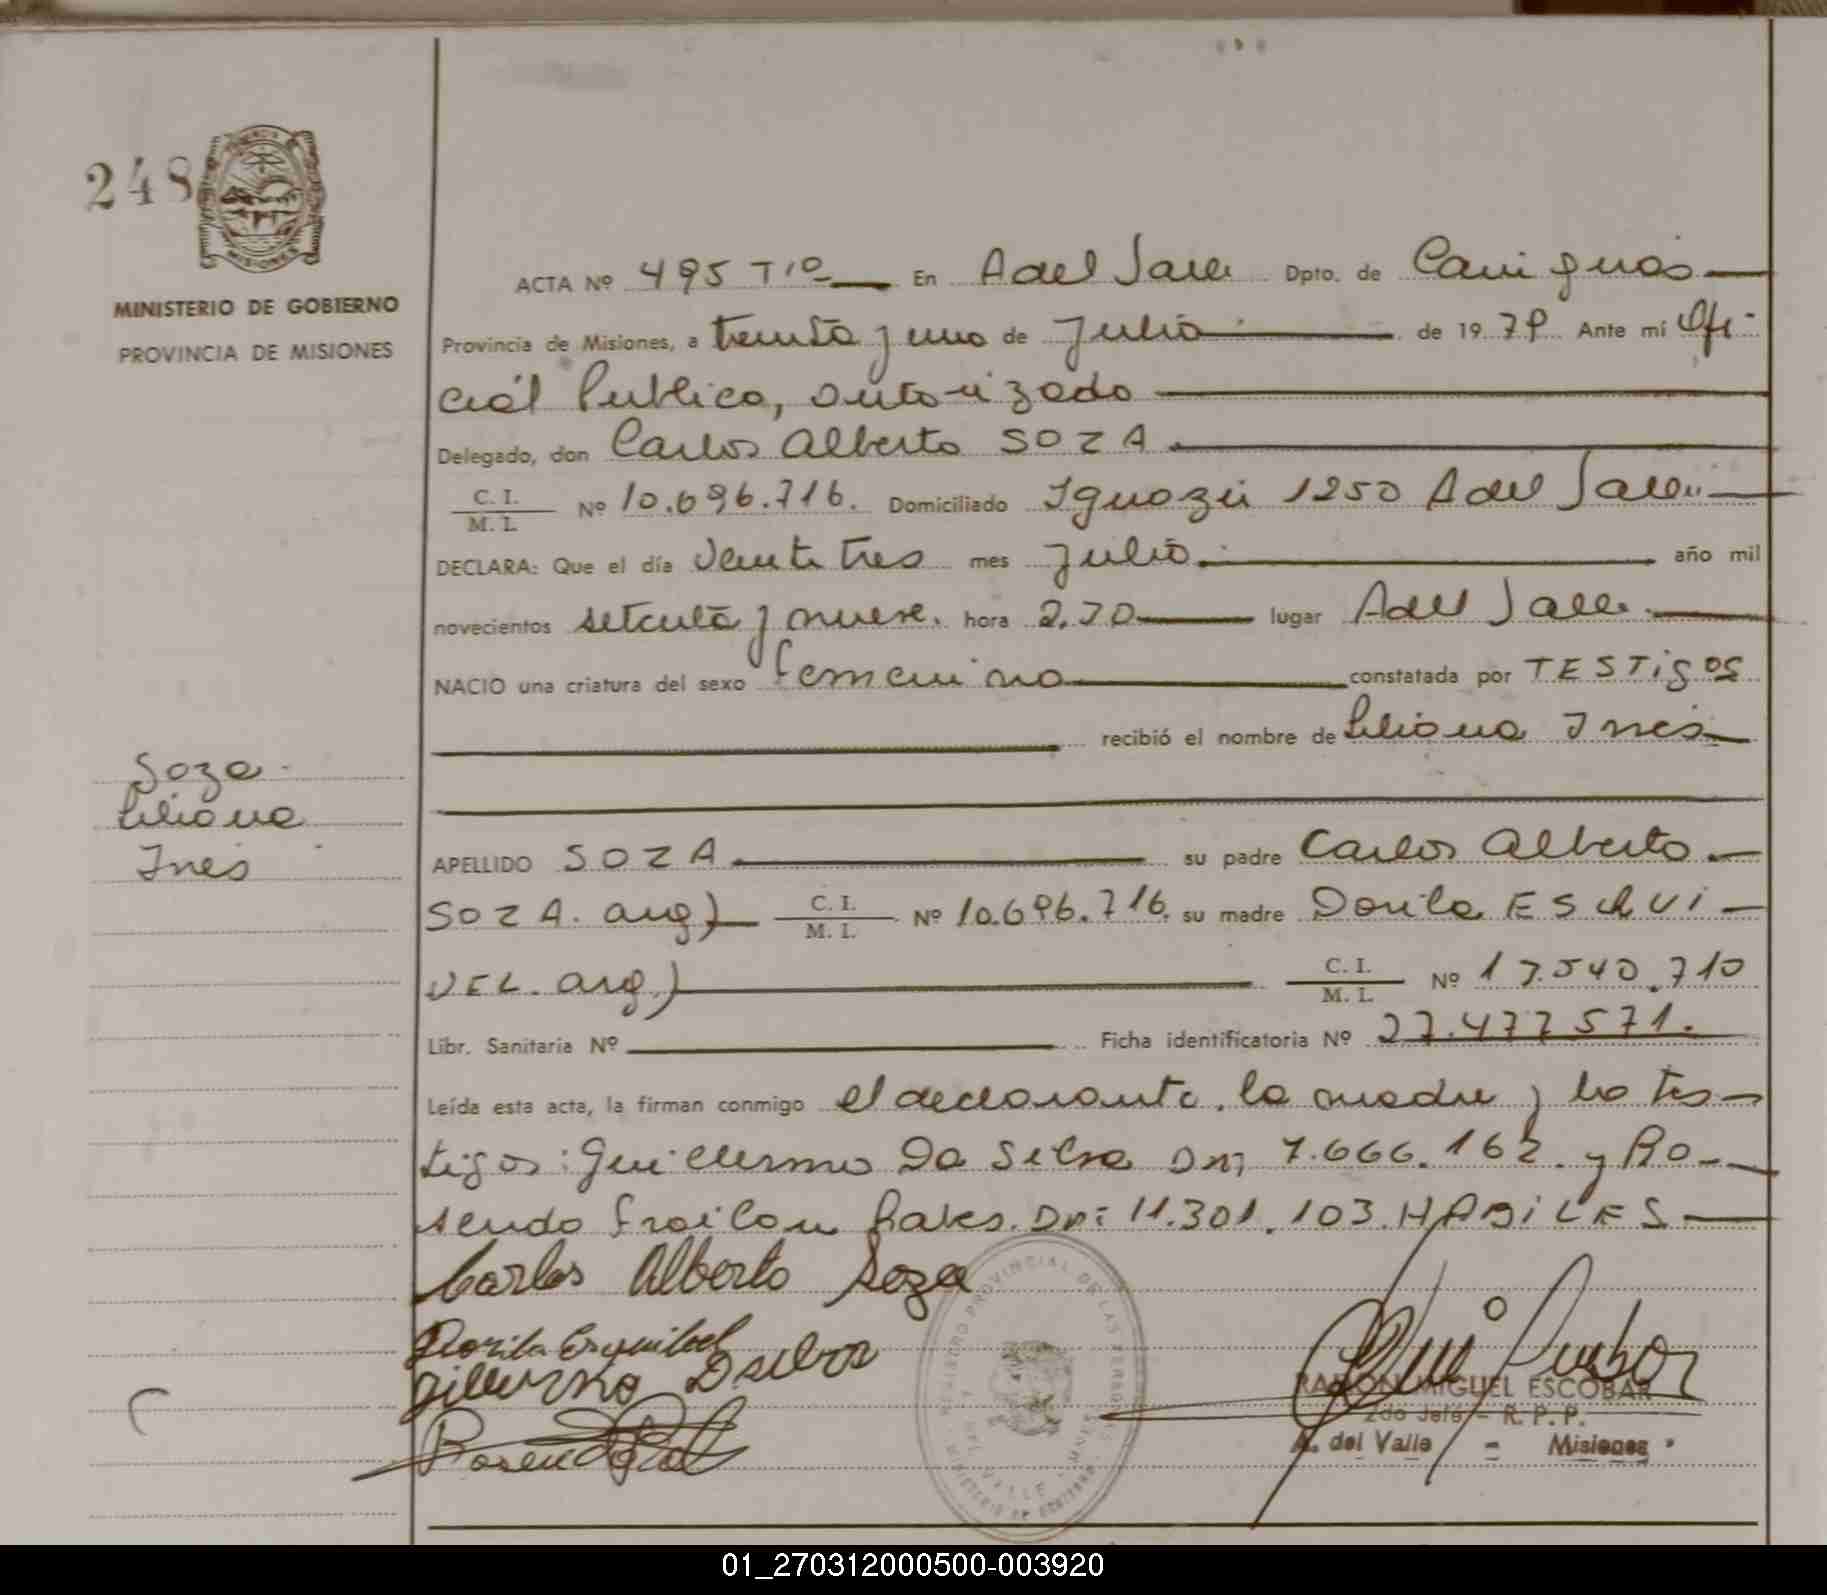 248
MISIONES
MINISTERIO DE GOBIERNO
PROVINCIA DE MISIONES
ACTA Nº 495 Tº En A del Valle Dpto. de Cainguás
Provincia de Misiones, a treinta y uno de Julio de 19 79 Ante mí Ofi-
cial Publico, autorizado
Delegado, don Carlos Alberto SOZA
C. I.
M. I. Nº 10.696.716. Domiciliado Iguazú 1250 A del Valle
DECLARA: Que el día Veinte tres mes Julio año mil
novecientos setenta y nueve. hora 2.30 lugar A del Valle
NACIO una criatura del sexo femenino constatada por TESTigos
recibió el nombre de Liliana Inés
Soza
Liliana
Inés
APELLIDO SOZA su padre Carlos Alberto
SOZA. arg) C. I.
M. I. Nº 10.696.716. su madre Dorila ESQUI-
VEL. arg.) C. I.
M. I. Nº 17.540.710
Libr. Sanitaria Nº Ficha identificatoria Nº 27.477571.
Leída esta acta, la firman conmigo el declarante, la madre y los tes-
tigos: Guillermo Da Silva Dni 7.666.162. y Ro-
sendo Froilan Dni 11.301.103. HABiLES
Carlos Alberto Soza
Dorila Esquibel
Gillermo Dasilva
REGISTRO PROVINCIAL DE LAS PERSONAS
A. DEL VALLE - MNES.
MINISTERIO DE GOBIERNO
RAMON MIGUEL ESCOBAR
2do Jefe - R. P. P.
A. del Valle - Misiones
01_270312000500-003920